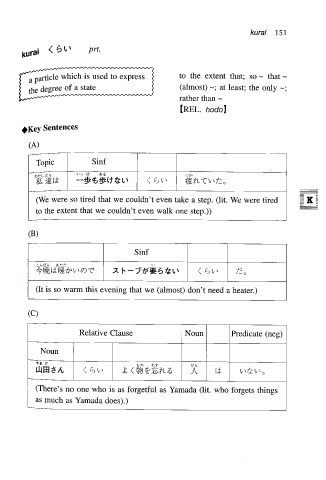 kurai 151
kurai くらい prt.
a particle which is used to express
the degree of a state
to the extent that; so ~ that ~
(almost) ~; at least; the only ~;
rather than ~
【REL. hodo】
◆Key Sentences
(A)
Topic Sinf
私達は 一歩も歩けない くらい 疲れていた。
(We were so tired that we couldn't even take a step. (lit. We were tired
to the extent that we couldn't even walk one step.))
K
(B)
Sinf
今晩は暖かいので ストーブが要らない くらい だ。
(It is so warm this evening that we (almost) don't need a heater.)
(C)
Relative Clause Noun Predicate (neg)
Noun
山田さん くらい よく物を忘れる 人 は いない。
(There's no one who is as forgetful as Yamada (lit. who forgets things
as much as Yamada does).)